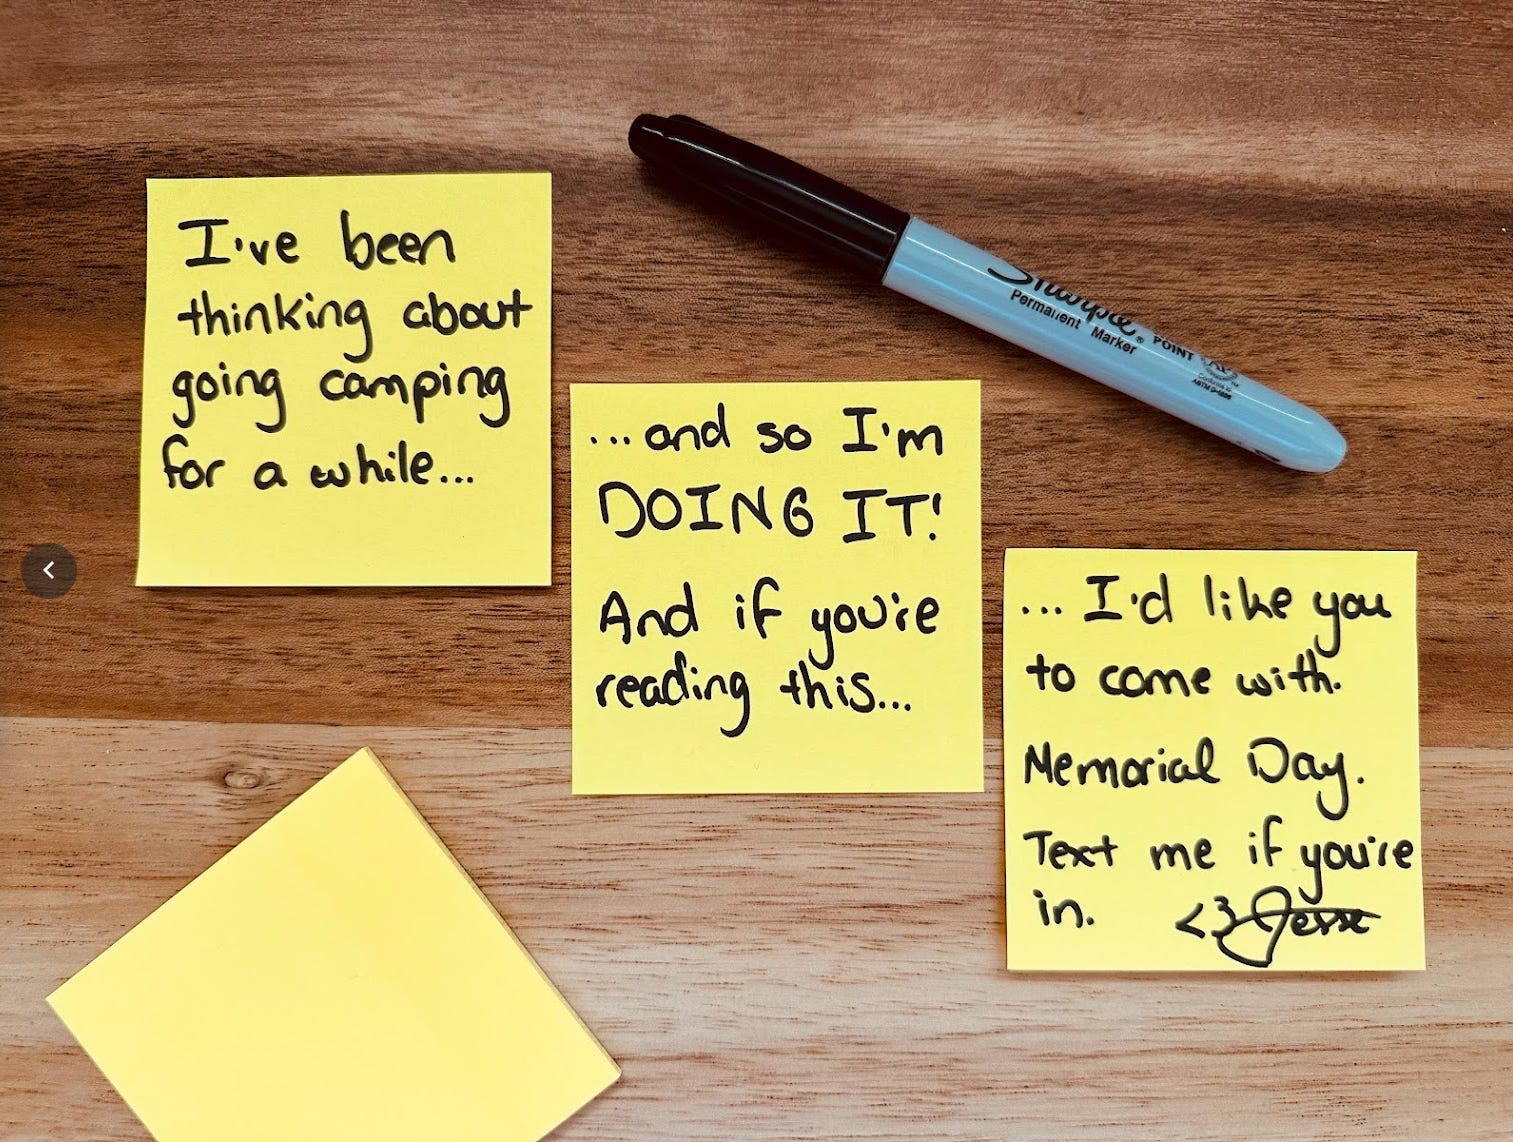 I've been
thinking about
going camping
for a while...
...and so I'm
DOING IT!
And if you're
reading this...
... I'd like you
to come with.
Memorial Day.
Text me if you're
in. <3 Jesse
Sharpie®
Permanent Marker
POINT